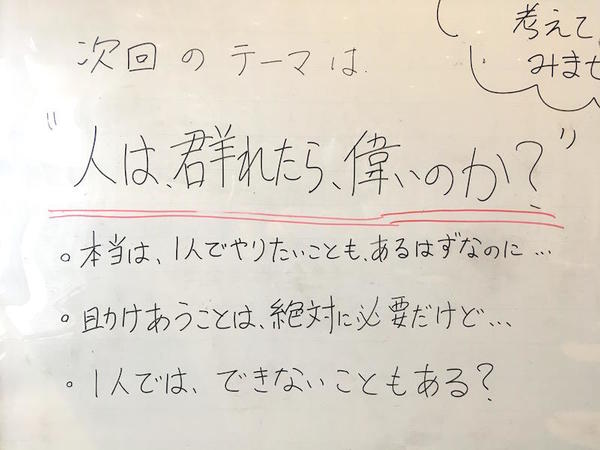 考えて
みませ
次回のテーマは
"人は、群れたら、偉いのか?"
。本当は、1人でやりたいことも、あるはずなのに…
。助けあうことは、絶対に必要だけど…
。1人では、できないこともある?